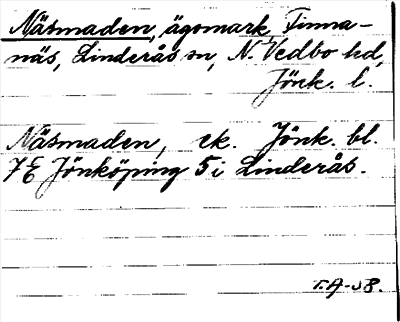 Näsmaden, ägomark, Finna-
näs, Linderås sn, N. Vedbo hd,
Jönk. l.
Näsmaden, ek. Jönk. bl.
7E Jönköping 5i Linderås.
T.A-58.